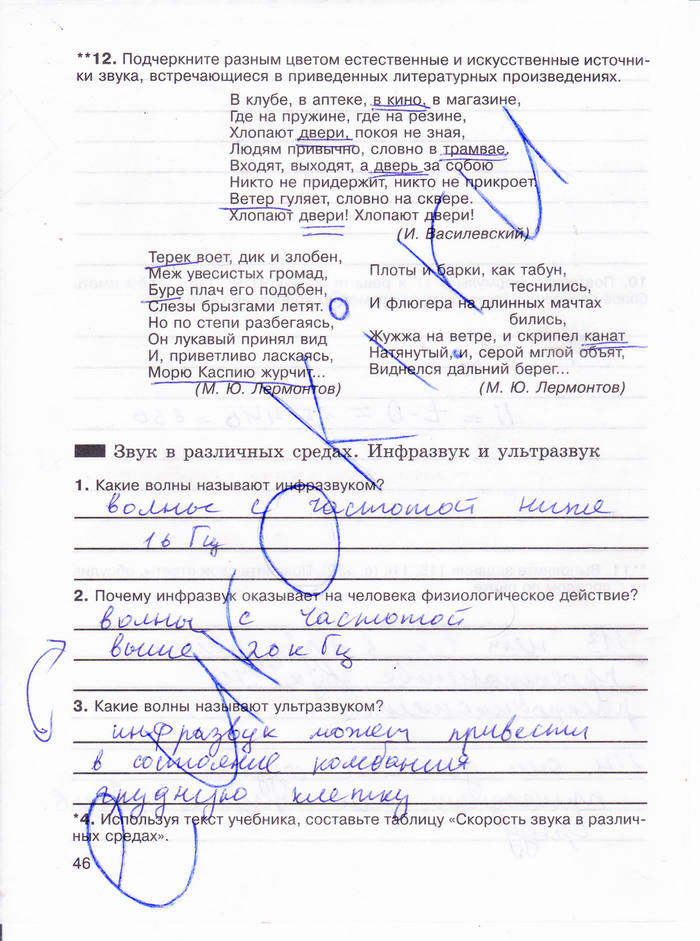 **12. Подчеркните разным цветом естественные и искусственные источни-
ки звука, встречающиеся в приведенных литературных произведениях.
В клубе, в аптеке, в кино, в магазине,
Где на пружине, где на резине,
Хлопают двери, покоя не зная,
Людям привычно, словно в трамвае.
Входят, выходят, а дверь за собою
Никто не придержит, никто не прикроет.
Ветер гуляет, словно на сквере.
Хлопают двери! Хлопают двери!
(И. Василевский)
Терек воет, дик и злобен,
Меж увесистых громад,
Буре плач его подобен,
Слезы брызгами летят.
Но по степи разбегаясь,
Он лукавый принял вид
И, приветливо ласкаясь,
Морю Каспию журчит...
(М. Ю. Лермонтов)
Плоты и барки, как табун,
теснились,
И флюгера на длинных мачтах
бились,
Жужжа на ветре, и скрипел канат
Натянутый, и, серой мглой объят,
Виднелся дальний берег...
(М. Ю. Лермонтов)
Звук в различных средах. Инфразвук и ультразвук
1. Какие волны называют инфразвуком?
волны с частотой ниже
16 Гц
2. Почему инфразвук оказывает на человека физиологическое действие?
волны с частотой
выше 20 кГц
3. Какие волны называют ультразвуком?
инфразвук может привести
в состояние
грудную клетку
*4. Используя текст учебника, составьте таблицу «Скорость звука в различ-
ных средах».
46